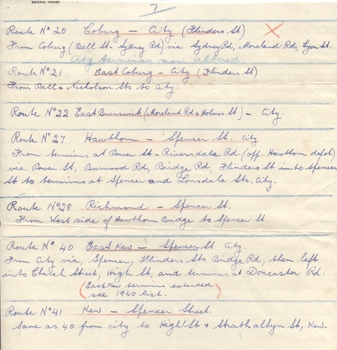 7
Route No 20 Coburg - City (Flinders St)
From Coburg (Bell St. Sydney Rd) via Sydney Rd, Moreland Rd, Lyon St.
City terminus now altered
Route No 21 East Coburg - City (Flinders St)
From Bell & Nicholson Sts to City.
Route No 22 East Brunswick (Moreland Rd & Holmes St) - City
Route No 27 Hawthorn - Spencer St. City
From terminus at Power St - Riversdale Rd (off Hawthorn depot)
via Power St, Burwood Rd, Bridge Rd, Flinders St into Spencer
St to terminus at Spencer and Lonsdale Sts. City.
Route No 28 Richmond - Spencer St.
From West side of Hawthorn Bridge to Spencer St.
Route No 40 East Kew - Spencer St City
From City via, Spencer, Flinders Sts Bridge Rd, then left
into Church Street, High St, and terminus at Doncaster Rd.
(East Kew terminus extended
see 1940 list.
Route No 41 Kew - Spencer Street.
Same as 40 from city to High St & Strathalbyn St, Kew.